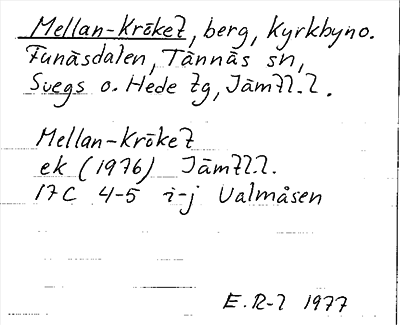 Mellan-Kröket, berg, Kyrkbyno.
Funäsdalen, Tännäs sn,
Svegs o. Hede tg, Jämtl.l.
Mellan-Kröket
ek (1976) Jämtl.l.
17C 4-5 i-j Valmåsen
E.R-l 1977